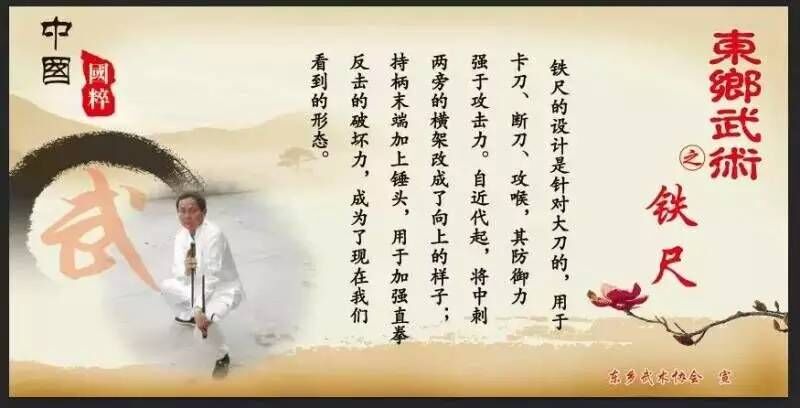 東鄉武術
之
铁尺
铁尺的设计是针对大刀的，用于
卡刀、断刀、攻喉，其防御力
强于攻击力。自近代起，将中刺
两旁的横架改成了向上的样子；
持柄末端加上锤头，用于加强直拳
反击的破坏力，成为了现在我们
看到的形态。
中國
國粹
武
东乡武术协会 宣